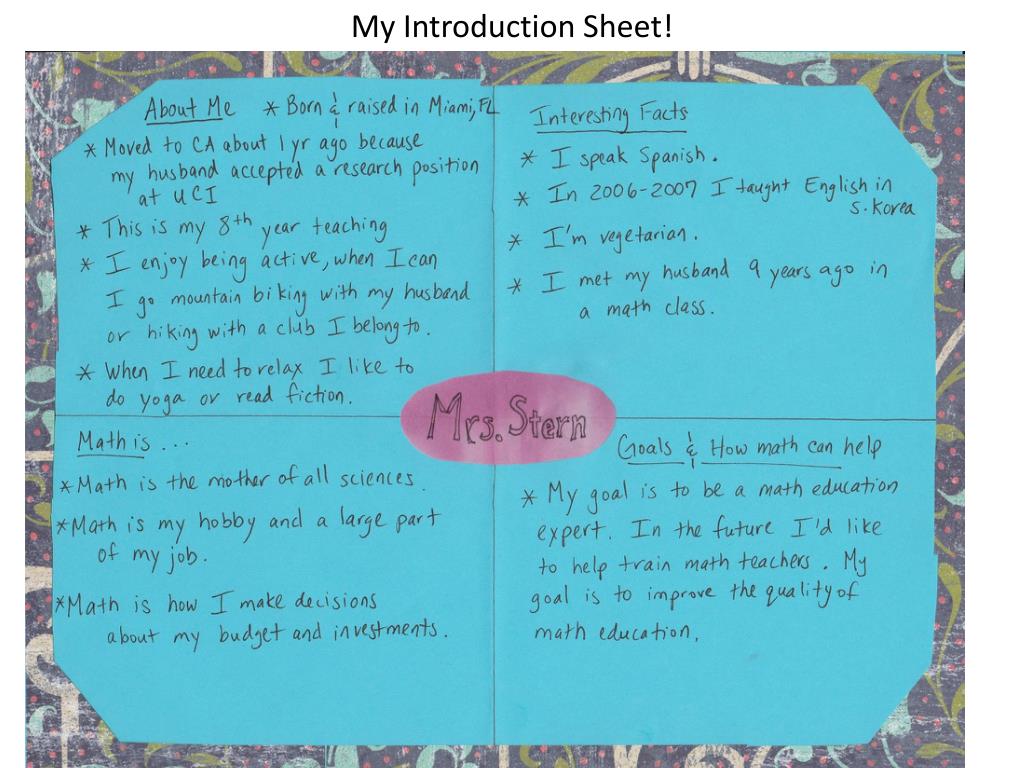 My Introduction Sheet!
About Me * Born & raised in Miami, FL
* Moved to CA about 1 yr ago because
my husband accepted a research position
at UCI
* This is my 8th year teaching
* I enjoy being active, when I can
I go mountain biking with my husband
or hiking with a club I belong to.
* When I need to relax I like to
do yoga or read fiction.
Interesting Facts
* I speak Spanish.
* In 2006-2007 I taught English in
S. Korea
* I'm vegetarian.
* I met my husband 9 years ago in
a math class.
Mrs. Stern
Math is ...
* Math is the mother of all sciences.
* Math is my hobby and a large part
of my job.
* Math is how I make decisions
about my budget and investments.
Goals & How math can help
* My goal is to be a math education
expert. In the future I'd like
to help train math teachers. My
goal is to improve the quality of
math education.